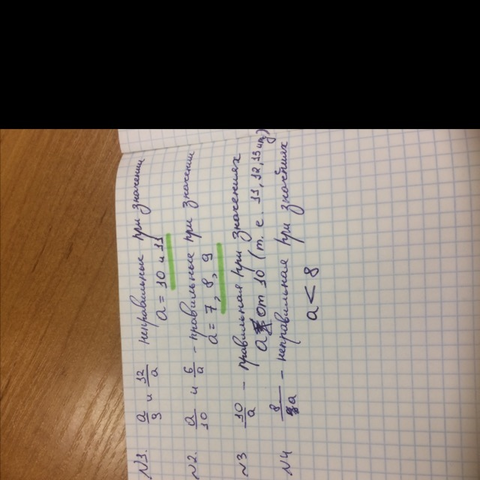 №1. a/3 и 12/a неправильные при значении
a = 10 и 11
№2. a/10 и 6/a - правильные при значении
a = 7, 8, 9
№3 10/a - правильная при значениях
a от 10 (т. е. 11, 12, 13 и
№4 8/a - неправильная при значениях
a < 8